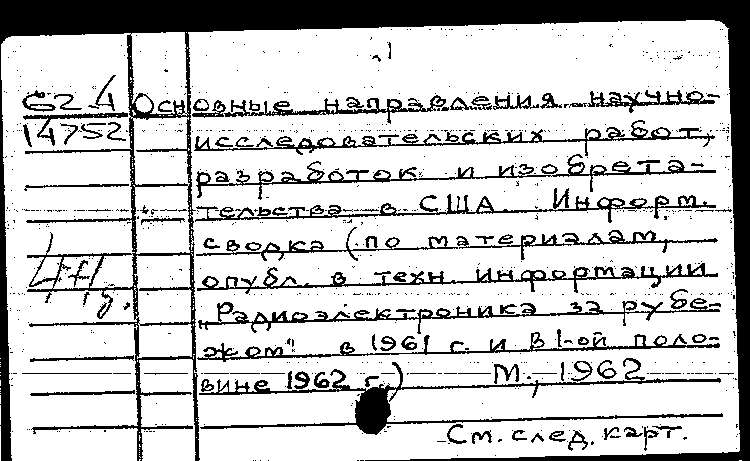 62.4 Основные направления научно-
14752 исследовательских работ,
разработок и изобрета-
тельства в США. Информ.
сводка (по материалам,
опубл. в техн. информации
„Радиоэлектроника за рубе-
жом" в 1961 г. и в I-ой поло-
вине 1962 г.) М., 1962
См. след. карт.